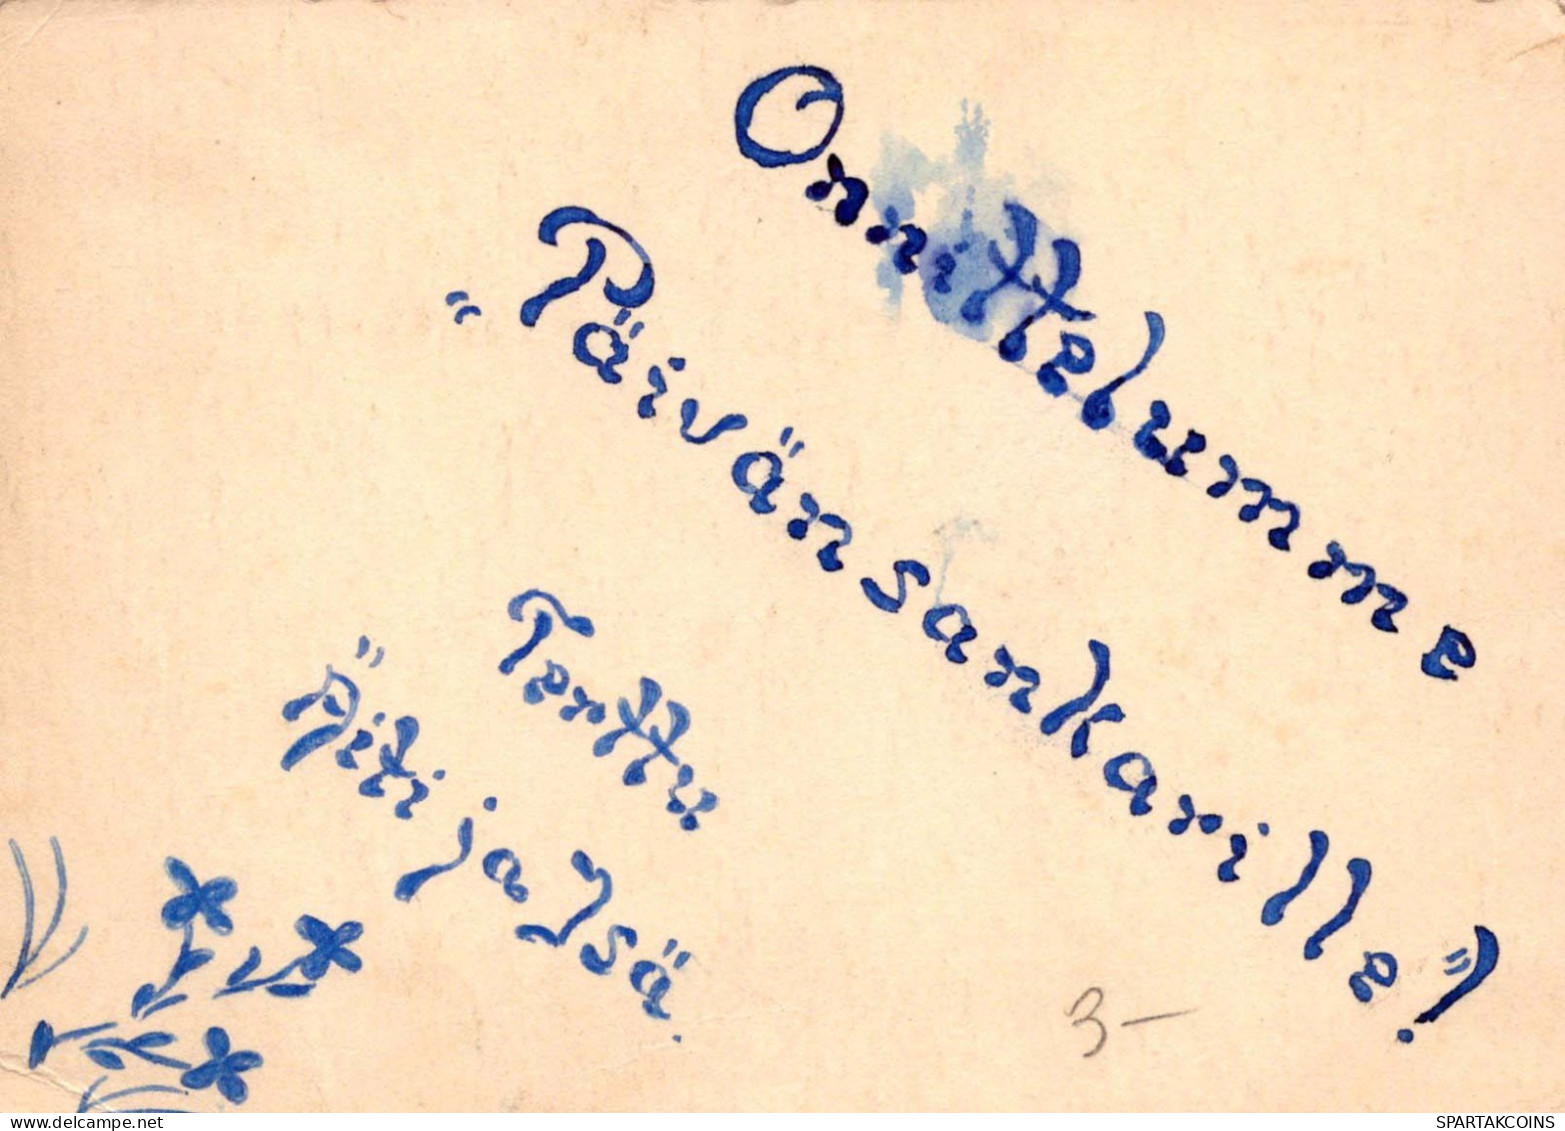 Onnittelumme
"Päivänsankarille"!
Terttu
Äiti ja Isä.
3-
SPARTAKCOINS